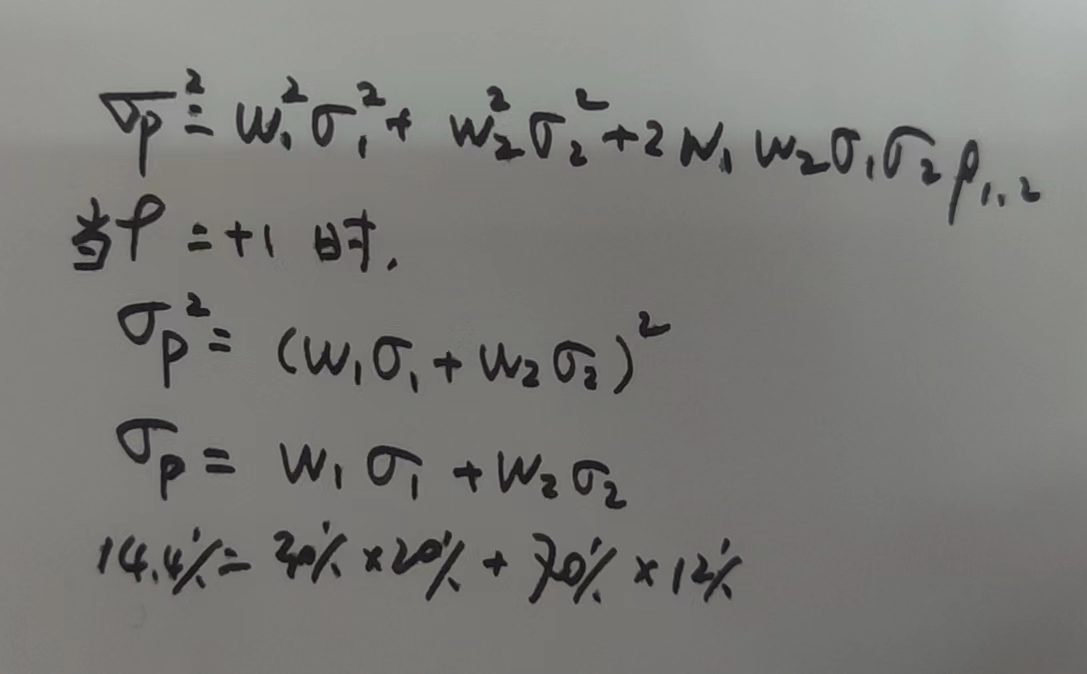 σp² = w₁²σ₁² + w₂²σ₂² + 2w₁w₂σ₁σ₂ρ₁,₂
当ρ = +1 时,
σp² = (w₁σ₁ + w₂σ₂)²
σp = w₁σ₁ + w₂σ₂
14.4% = 30% × 20% + 70% × 12%